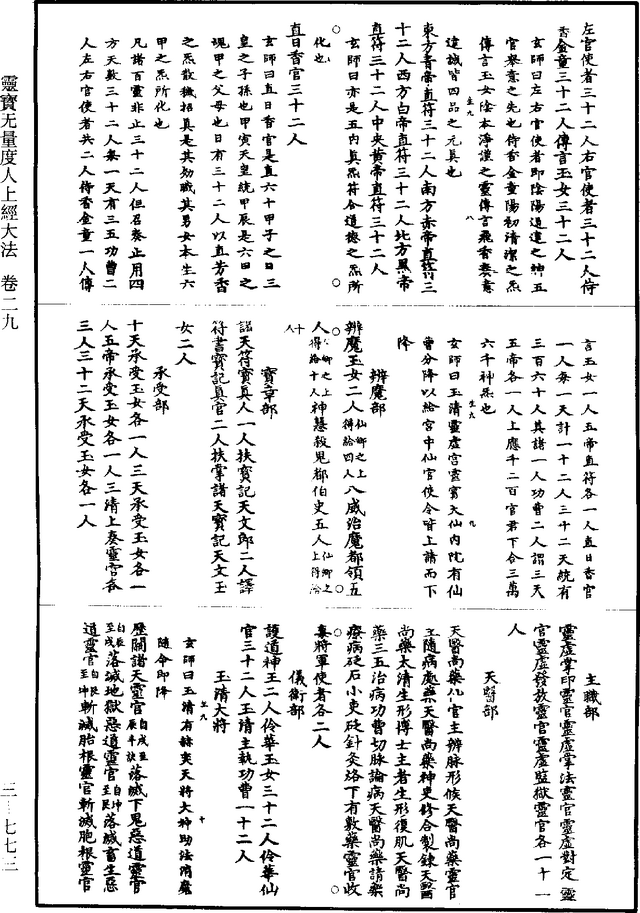 左官使者三十二人右官使者三十二人侍
香金童三十二人傳言玉女三十二人
玄師曰左右官使者即陰陽通達之神五
官舉意之先也侍香金童陽初清潔之炁
傳言玉女陰本淨謹之靈傳言飛香奏意
達誠皆四品之元真也
東方青帝直符三十二人南方赤帝直符三
十二人西方白帝直符三十二人北方黑帝
直符三十二人中央黃帝直符三十二人
玄師曰亦是五內真炁符合道德之炁所
化也
直日香官三十二人
玄師曰直日香官是直六十甲子之日三
皇之子孫也甲寅天皇統甲辰是六曰之
魂甲之父母也日有三十二人以直芳香
之炁散機招真是其効職其男女本生六
甲之炁所化也
凡諸百靈非止三十二人但召奏止用四
方天數三十二人每一天有三五功曹二
人左右官使者共二人侍香金童一人傳
言玉女一人五帝直符各一人直日香官
一人每一天計一十二人三十二天統有
三百六十人其諸一人功曹二人謂三天
五帝各一人上應千二百官君下合三萬
六千神炁也
玄師曰玉清靈虛宮靈寶天仙內院有仙
曹分降以給宮中仙官使令皆上請而下
降
辨魔部
辨魔玉女二人仙卿之上得給四人八威治魔都領五
人仙卿之上得給十人神慧殺鬼都伯吏五人仙卿之上得給十人
寶章部
詔天符寶真人一人扶寶記天文郎二人譯
符書寶記真官二人扶掌諸天寶記天文玉
女二人
承受部
十天承受玉女各一人三天承受玉女各一
人五帝承受玉女各一人三清上奏靈官各
三人三十二天承受玉女各一人
主職部
靈虛掌印靈官靈虛掌法靈官靈虛對定靈
官靈虛發放靈官靈虛監獄靈官各一十一
人
天醫部
天醫尚藥八官主辨脉形候天醫尚藥靈官
主隨病處藥天醫尚藥神吏修合製鍊天醫
尚藥太清生形博士主者生形復肌天醫尚
藥三五治病功曹切脉論病天醫尚藥請藥
療病砭石小吏砭針灸烙下有敷藥靈官收
毒將軍使者各二人
儀衛部
護道神王二人伶華玉女三十二人伶華仙
官三十二人玉清主執功曹一十二人
玉清大將
玄師曰玉清有赫奕天將大神助法消魔
隨令即降
歷關諸天靈官自戌至辰半訣落滅下鬼惡道靈官
自辰至戌落滅地獄惡道靈官自坤至艮落滅畜生惡
道靈官自艮至坤斬滅胎根靈官斬滅胞根靈官
靈寶无量度人上經大法　卷二九
三—七七三